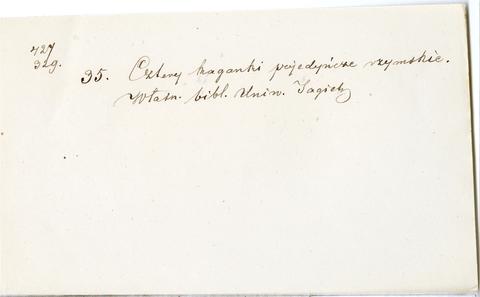 427
329.
35. Cztery kaganki pojedyńcze rzymskie.
Własn. bibl. Uniw. Jagiel.